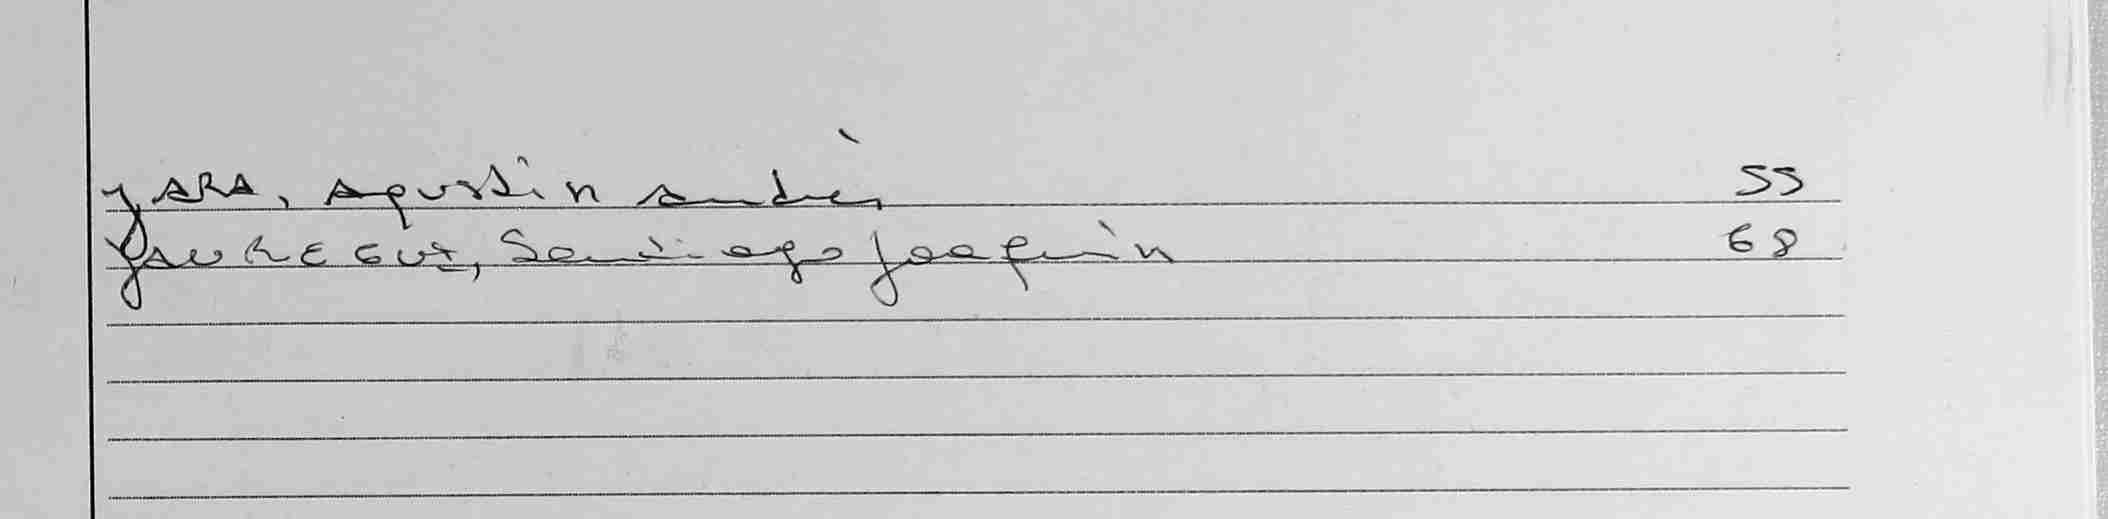 JARA, Agustin Andrès 55
JAUREGUI, Santiago Joaquin 68